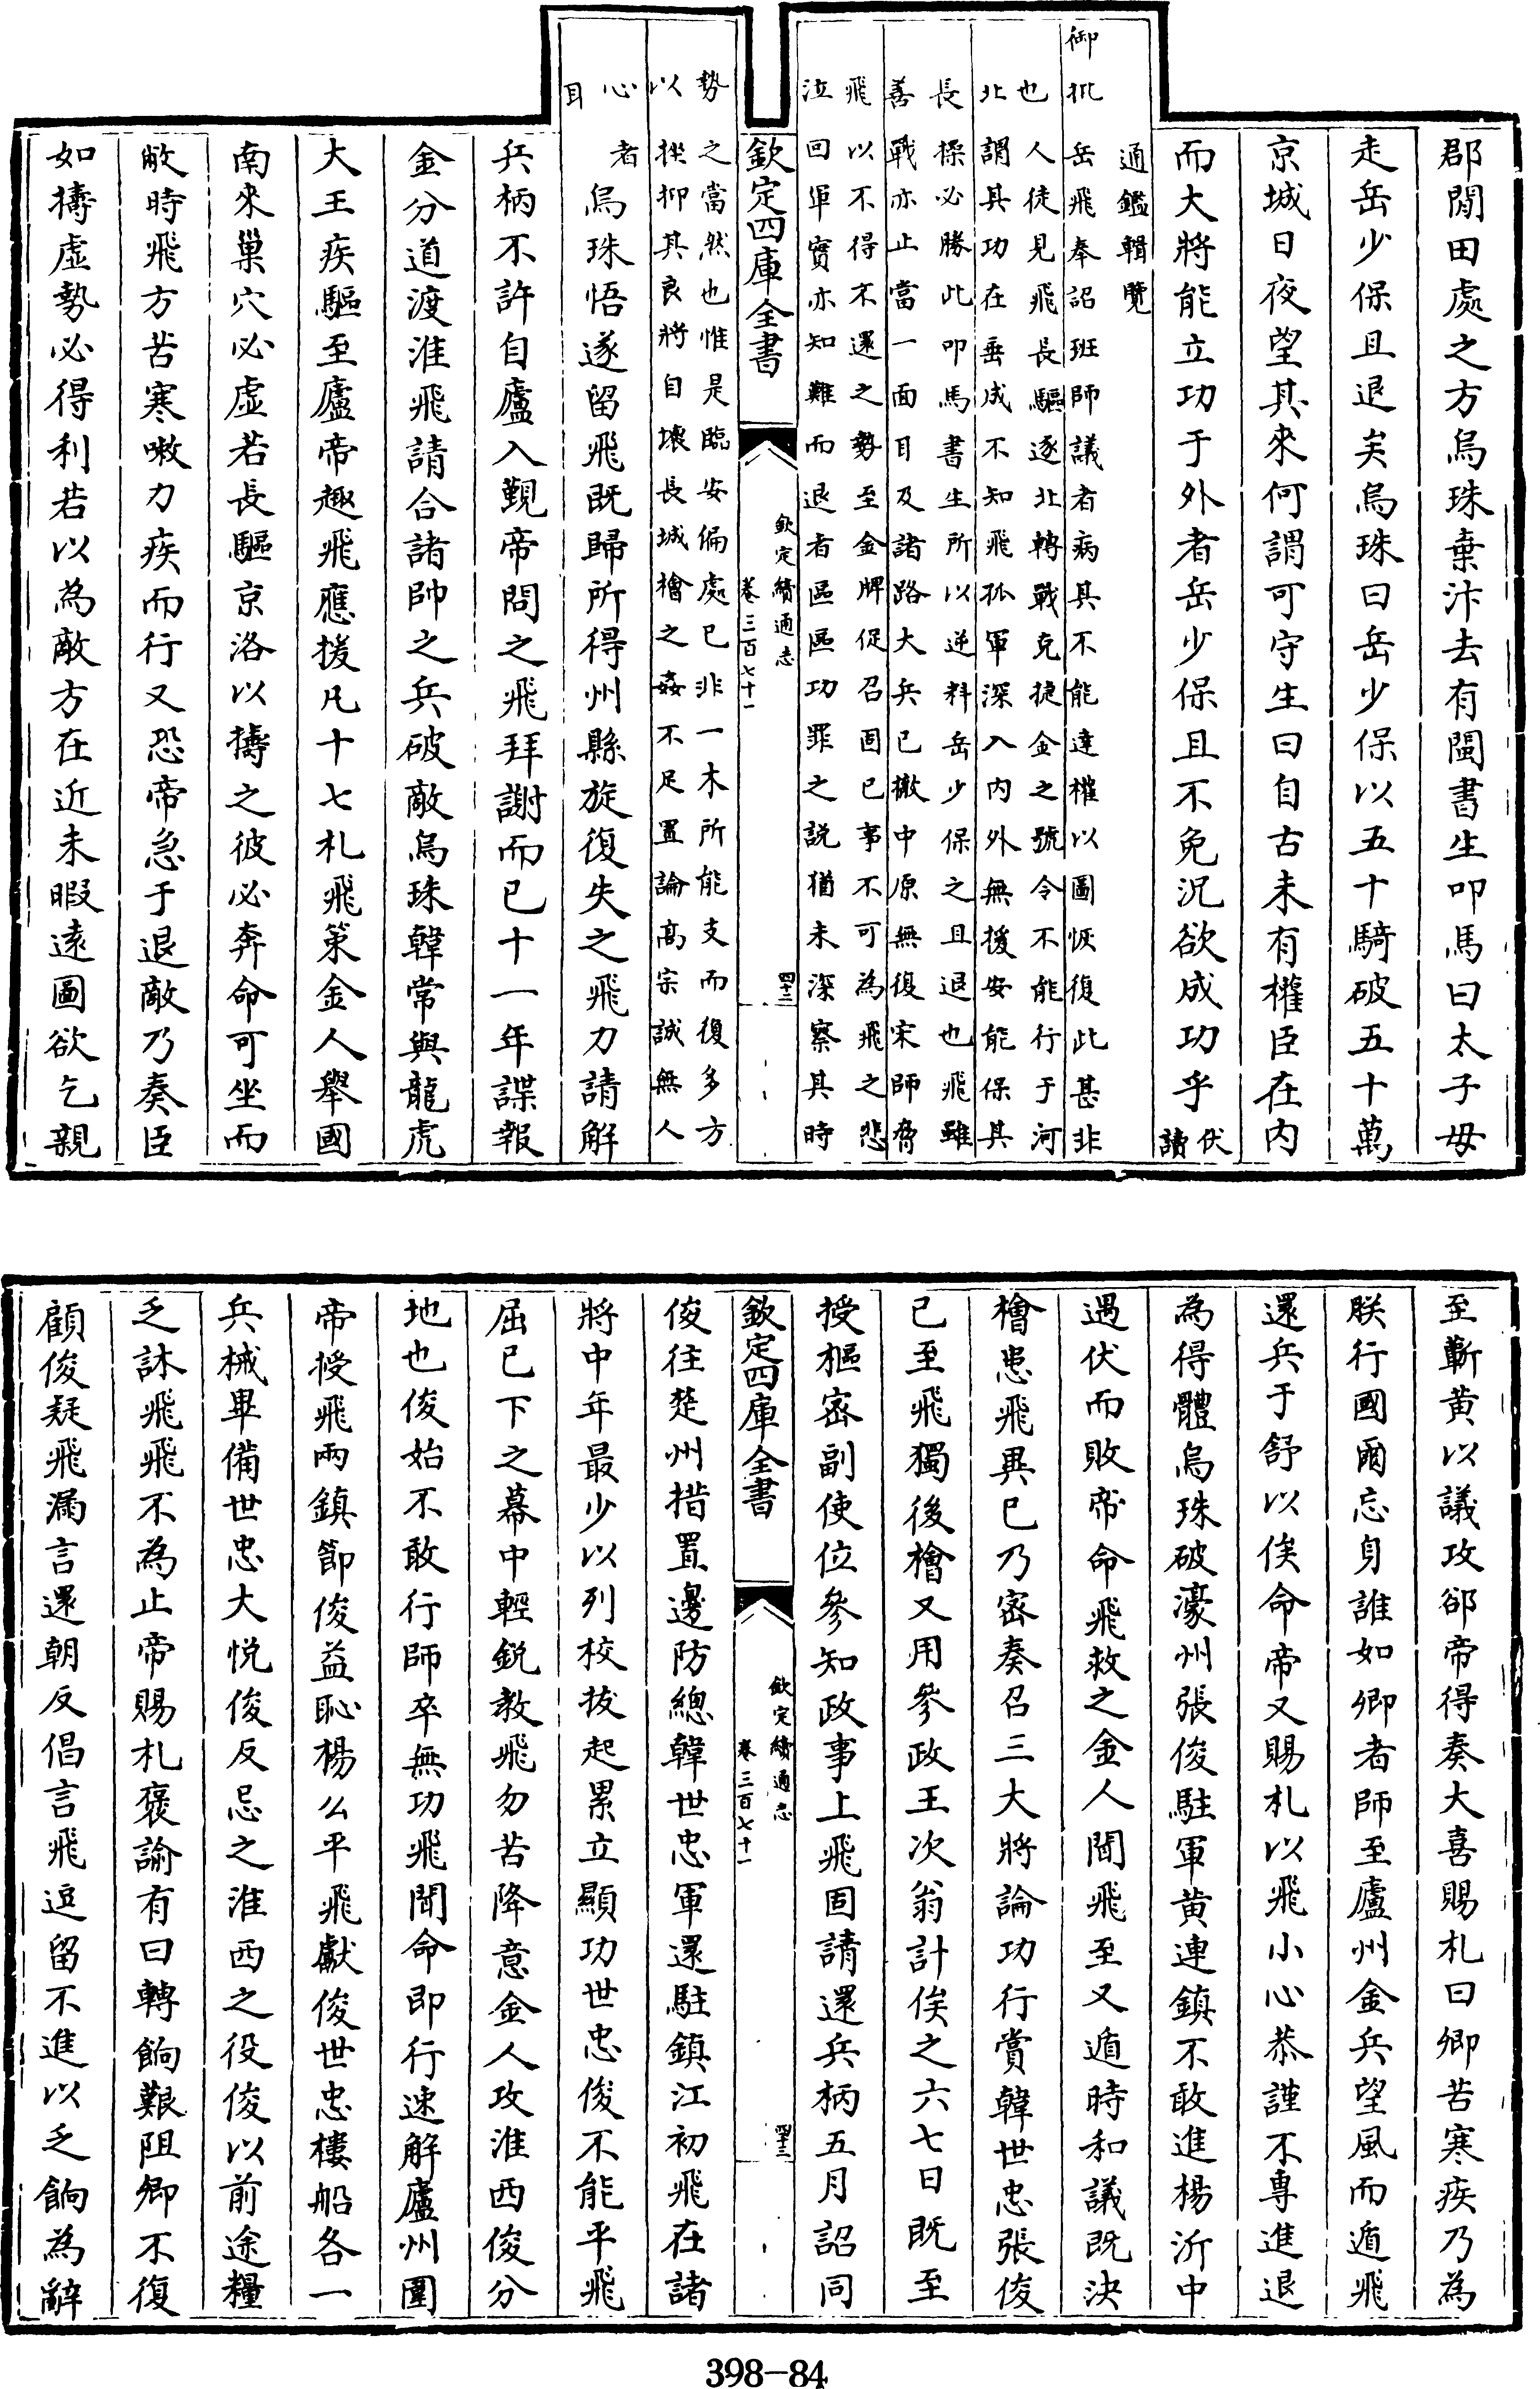 郡閒田處之方烏珠棄汴去有閩書生叩馬曰太子毋
走岳少保且退矣烏珠曰岳少保以五十騎破五十萬
京城日夜望其來何謂可守生曰自古未有權臣在内
而大將能立功于外者岳少保且不免況欲成功乎伏讀
通鑑輯覽
御批岳飛奉詔班師議者病其不能達權以圖恢復此甚非
也人徒見飛長驅逐北轉戰克捷金之號令不能行于河
北謂其功在垂成不知飛孤軍深入内外無援安能保其
長操必勝此叩馬書生所以逆料岳少保之且退也飛雖
善戰亦止當一面耳及諸路大兵已撤中原無復宋師脅
飛以不得不還之勢至金牌促召固已事不可為飛之悲
泣回軍實亦知難而退者區區功罪之說猶未深察其時
欽定四庫全書
欽定續通志
卷三百七十一
四十二
勢之當然也惟是臨安偏處已非一木所能支而復多方
以摧抑其良將自壞長城檜之姦不足置論高宗誠無人
心者耳
烏珠悟遂留飛既歸所得州縣旋復失之飛力請解
兵柄不許自廬入覲帝問之飛拜謝而已十一年諜報
金分道渡淮飛請合諸帥之兵破敵烏珠韓常與龍虎
大王疾驅至廬帝趣飛應援凡十七札飛策金人舉國
南來巢穴必虛若長驅京洛以擣之彼必奔命可坐而
敝時飛方苦寒嗽力疾而行又恐帝急于退敵乃奏臣
如擣虛勢必得利若以為敵方在近未暇遠圖欲乞親
至蘄黃以議攻郤帝得奏大喜賜札曰卿苦寒疾乃為
朕行國爾忘身誰如卿者師至廬州金兵望風而遁飛
還兵于舒以俟命帝又賜札以飛小心恭謹不專進退
為得體烏珠破濠州張俊駐軍黃連鎮不敢進楊沂中
遇伏而敗帝命飛救之金人聞飛至又遁時和議既決
檜患飛異已乃密奏召三大將論功行賞韓世忠張俊
已至飛獨後檜又用參政王次翁計俟之六七日既至
授樞密副使位參知政事上飛固請還兵柄五月詔同
欽定四庫全書
欽定續通志
卷三百七十一
四十三
俊往楚州措置邊防總韓世忠軍還駐鎮江初飛在諸
將中年最少以列校拔起累立顯功世忠俊不能平飛
屈已下之幕中輕銳教飛勿苦降意金人攻淮西俊分
地也俊始不敢行師卒無功飛聞命即行速解廬州圍
帝授飛兩鎮節俊益恥楊么平飛獻俊世忠樓船各一
兵械畢備世忠大悅俊反忌之淮西之役俊以前途糧
乏訹飛飛不為止帝賜札褒諭有曰轉餉艱阻卿不復
顧俊疑飛漏言還朝反倡言飛逗留不進以乏餉為辭
398-84